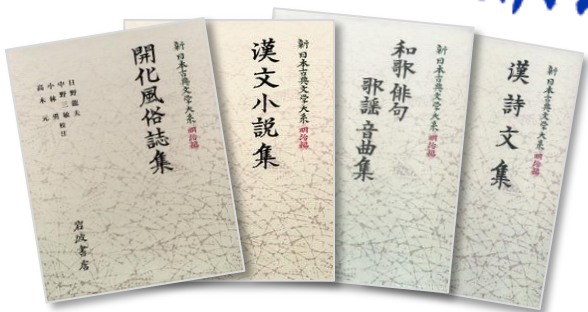 新日本古典文学大系 明治編
開化風俗誌集
日野龍夫
中野三敏
小林勇
高木元
校注
岩波書店
新日本古典文学大系 明治編
漢文小説集
新日本古典文学大系 明治編
和歌 俳句
歌謡 音曲集
新日本古典文学大系 明治編
漢詩文集